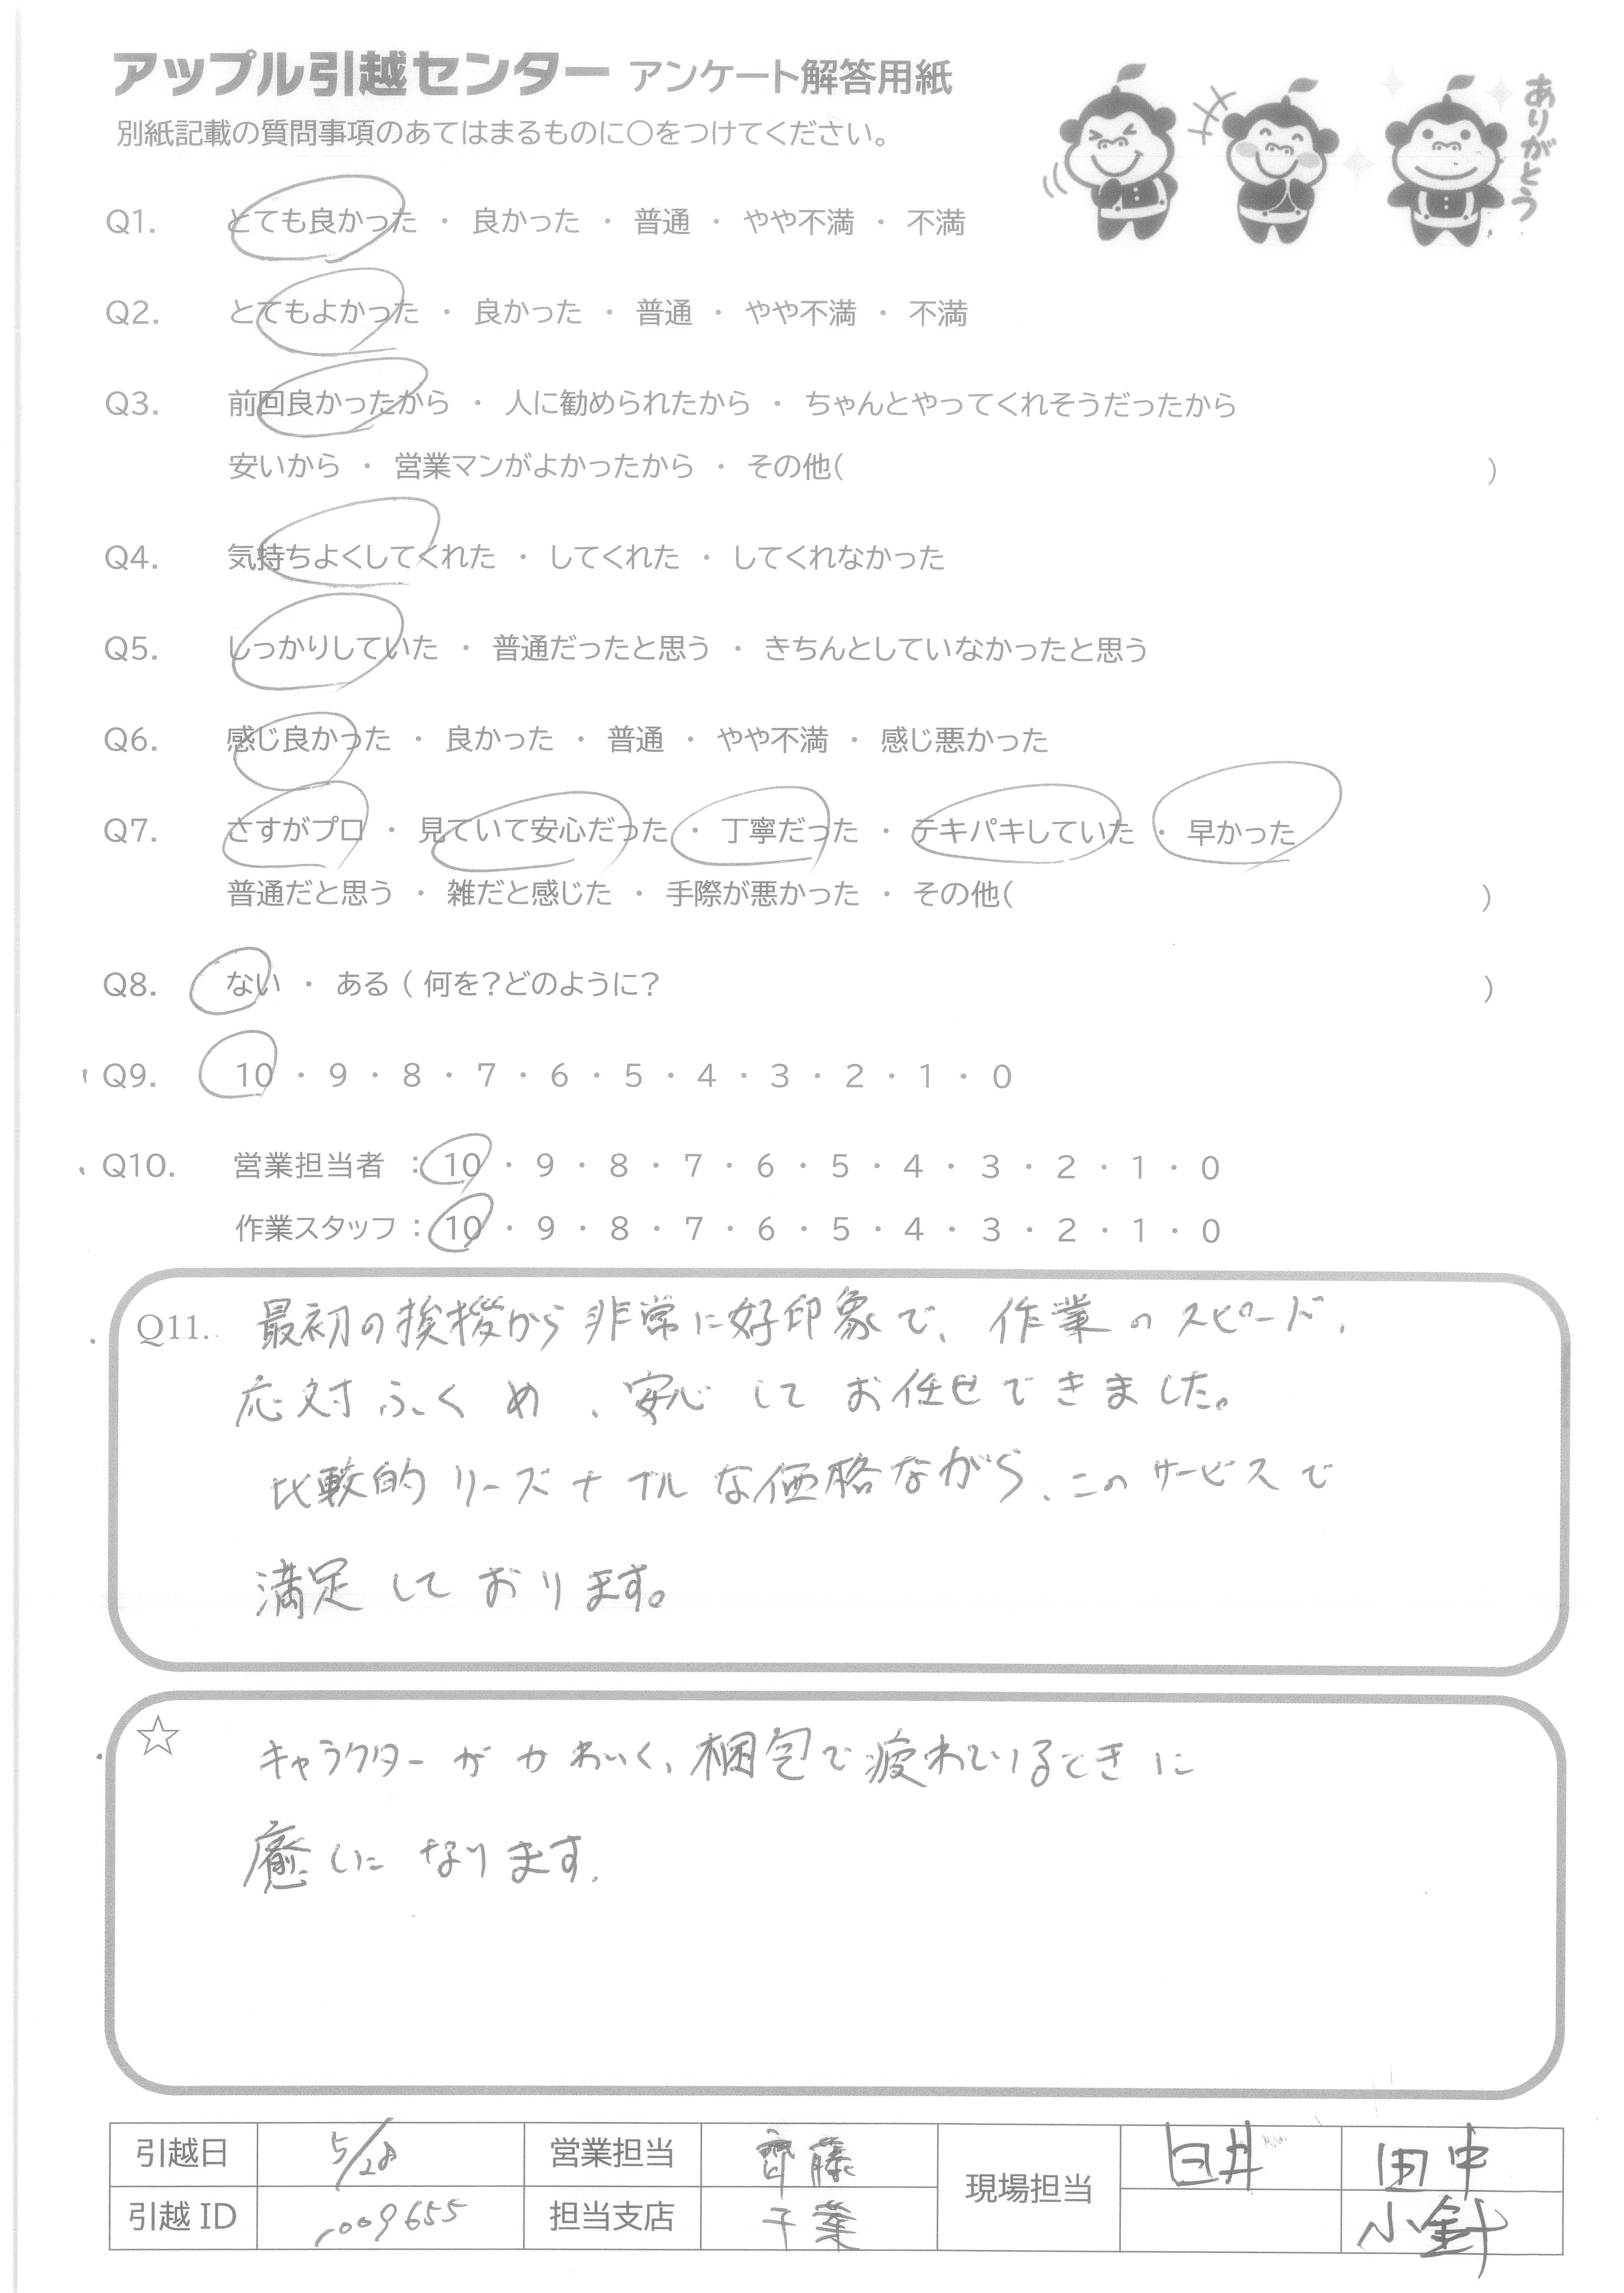 アップル引越センター アンケート解答用紙
ありがとう
別紙記載の質問事項のあてはまるものに〇をつけてください。
Q1. とても良かった ・ 良かった ・ 普通 ・ やや不満 ・ 不満
Q2. とてもよかった ・ 良かった ・ 普通 ・ やや不満 ・ 不満
Q3. 前回良かったから ・ 人に勧められたから ・ ちゃんとやってくれそうだったから
安いから ・ 営業マンがよかったから ・ その他( )
Q4. 気持ちよくしてくれた ・ してくれた ・ してくれなかった
Q5. しっかりしていた ・ 普通だったと思う ・ きちんとしていなかったと思う
Q6. 感じ良かった ・ 良かった ・ 普通 ・ やや不満 ・ 感じ悪かった
Q7. さすがプロ ・ 見ていて安心だった ・ 丁寧だった ・ テキパキしていた ・ 早かった
普通だと思う ・ 雑だと感じた ・ 手際が悪かった ・ その他( )
Q8. ない ・ ある ( 何を?どのように? )
Q9. 10 ・ 9 ・ 8 ・ 7 ・ 6 ・ 5 ・ 4 ・ 3 ・ 2 ・ 1 ・ 0
Q10. 営業担当者 : 10 ・ 9 ・ 8 ・ 7 ・ 6 ・ 5 ・ 4 ・ 3 ・ 2 ・ 1 ・ 0
作業スタッフ : 10 ・ 9 ・ 8 ・ 7 ・ 6 ・ 5 ・ 4 ・ 3 ・ 2 ・ 1 ・ 0
Q11. 最初の挨拶から非常に好印象で、作業のスピード、
応対ふくめ、安心してお任せできました。
比較的リーズナブルな価格ながら、このサービスで
満足しております。
☆ キャラクターがかわいく、梱包で疲れているときに
癒しになります.
引越日 5/28 営業担当 齊藤 現場担当 臼井 田中
引越ID 009655 担当支店 千葉 小針